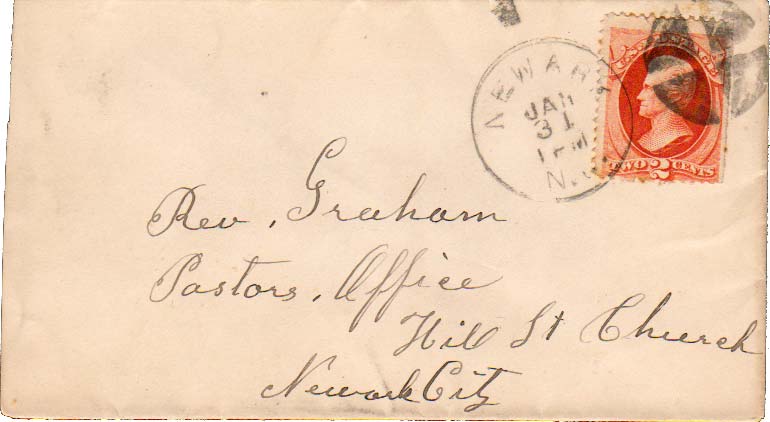 NEWARK
JAN
31
1 PM
N.J.
U.S. POSTAGE
TWO 2 CENTS
Rev. Graham
Pastors. Office
Hill St Church
Newark City